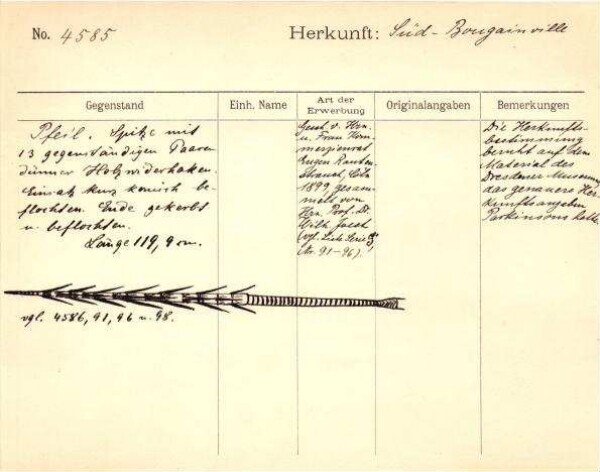 No. 4585
Herkunft: Süd-Bougainville
Gegenstand
Einh. Name
Art der Erwerbung
Originalangaben
Bemerkungen
Pfeil. Spitze mit
13 gegenständigen Paaren
dünner Holzwiderhaken.
Einsatz kurz konisch be-
flochten. Ende gekerbt
u. beflochten.
Länge 119,9 cm.
Gesch. v. Hrn.
u. Frau Kom-
merzienrat
Eugen Rauten-
strauch, Cöln
1899 gesam-
melt von
Hrn. Prof. Dr.
Wilh. Joest
(vgl. Liste Serie
Nr. 91-96).
Die Herkunfts-
bestimmung
beruht auf dem
Material des
Dresdener Museums,
das genauere Her-
kunftsangaben
Parkinsons hat.
vgl. 4586, 91, 96 u. 98.